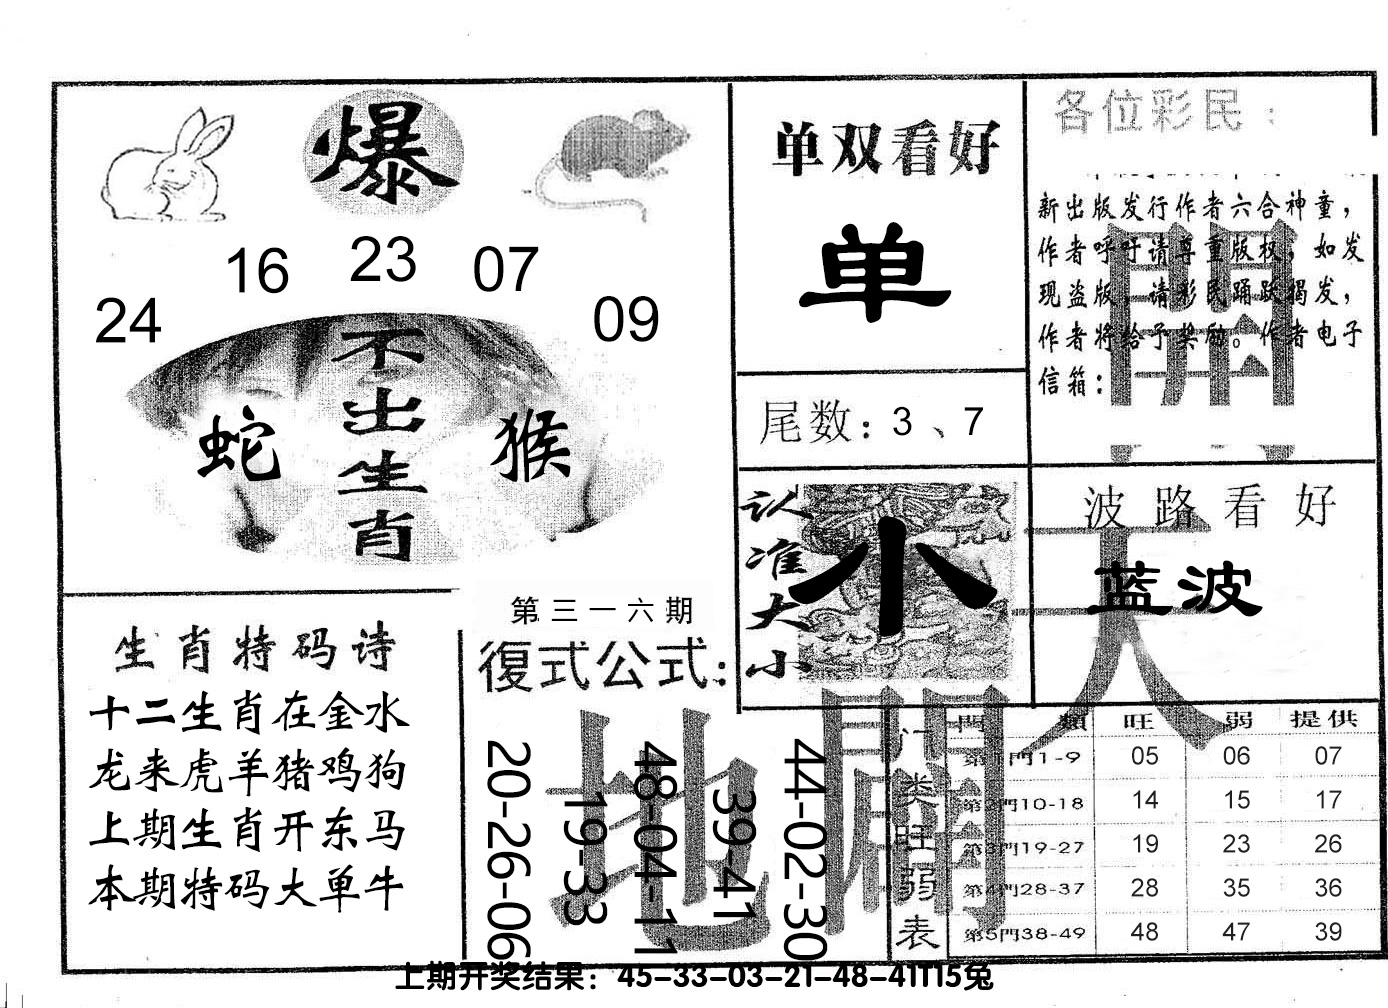 爆
24 16 23 07 09
不出生肖
蛇 猴
单双看好
单
尾数：3、7
各位彩民：
新出版发行作者六合神童，
作者呼吁请尊重版权，如发
现盗版，请彩民踊跃揭发，
作者将给予奖励。作者电子
信箱：
认准大小
小
波路看好
蓝波
生肖特码诗
十二生肖在金水
龙来虎羊猪鸡狗
上期生肖开东马
本期特码大单牛
第三一六期
復式公式：
20-26-06
19-33
48-04-11
39-41
44-02-30
天
開
地
闢
门类旺弱表
門類 旺 弱 提供
第1門1-9 05 06 07
第2門10-18 14 15 17
第3門19-27 19 23 26
第4門28-37 28 35 36
第5門38-49 48 47 39
上期开奖结果：45-33-03-21-48-41T15兔